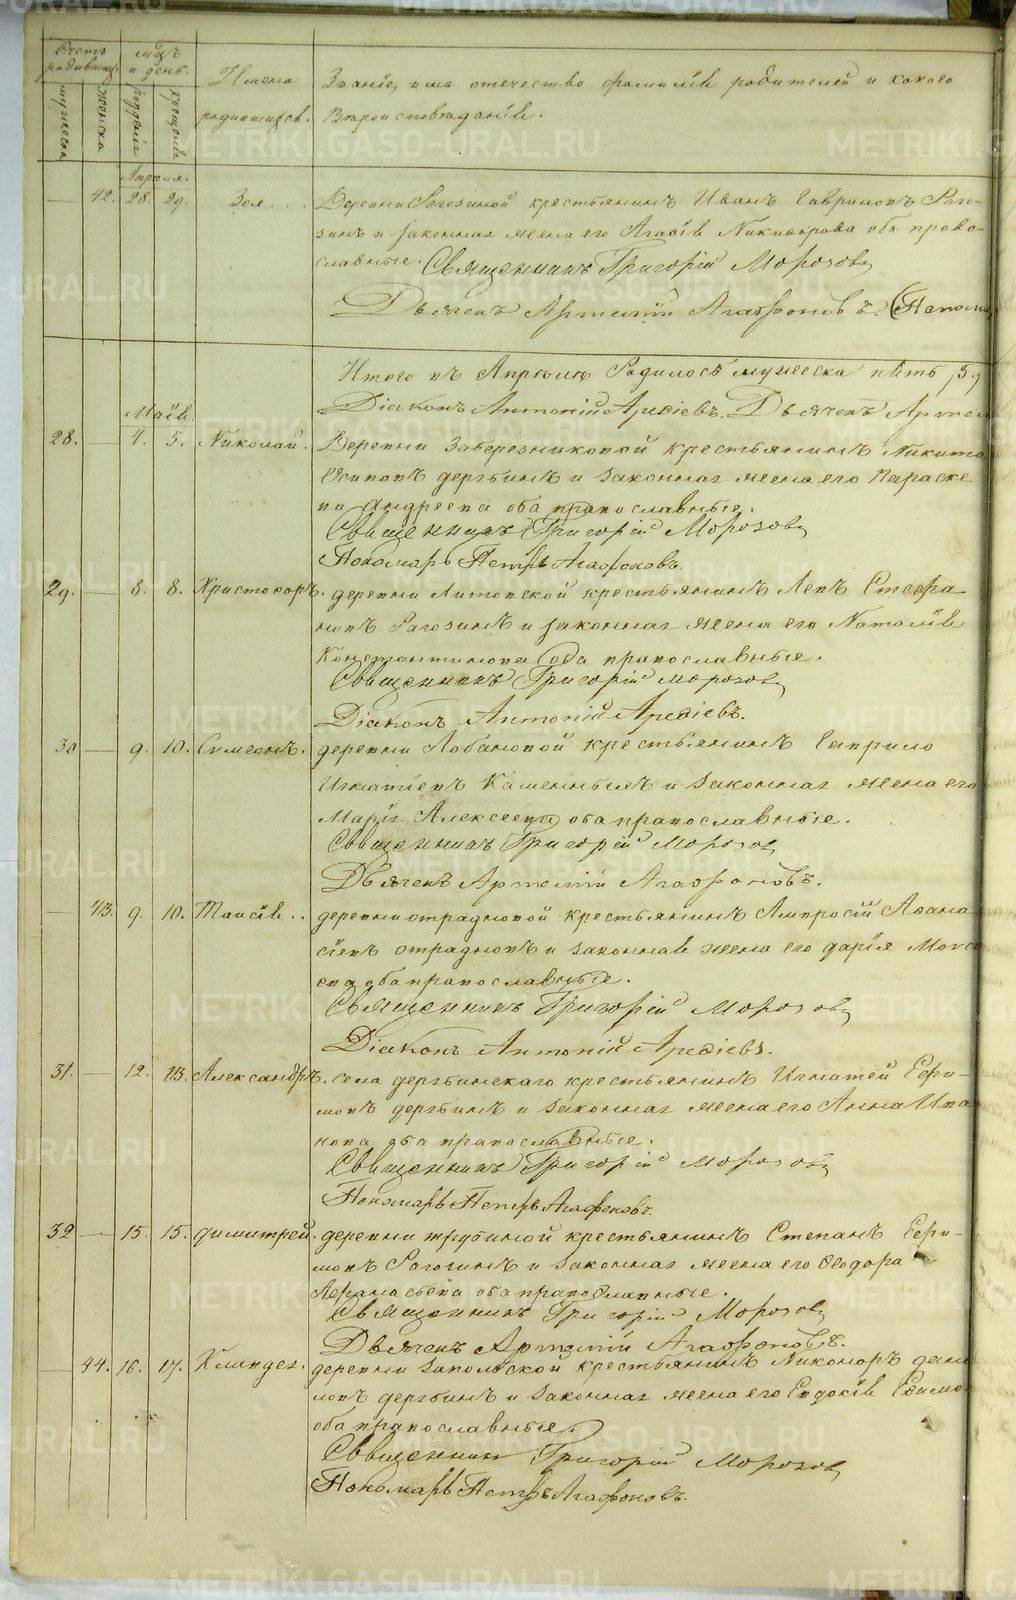 Счетъ родившихся. мцъ и день. Имена родившихся. Званіе, имя отечество фамилія родителей и какого Вѣроисповѣданія.
мужеска женска рожденія крещенія
Апрѣля.
— 42. 28. 29. Зоя... Деревни Рагозиной крестьянинъ Иванъ Гавриловъ Раго-
зинъ и законная жена его Агафія Никифорова оба право-
славные. Священникъ Григорій Морозовъ
Дьячекъ Артемій Агафоновъ. (
Итого въ Апрѣлѣ Родилось мужеска пять, 5,
Діаконъ Антоній Арефіевъ. Дьячекъ Артем
Маія
28. — 4. 5. Николай. Деревни крестьянинъ Никита
Осиповъ дерябинъ и законная жена его Параске
ва Андреева оба православные.
Священникъ Григорій Морозовъ
Пономарь Петръ Агафоновъ.
29. — 8. 8. Христофоръ. деревни Литовской крестьянинъ Левъ Стефа-
новъ Рагозинъ и законная жена его Наталія
Константинова оба православные.
Священникъ Григорій Морозовъ
Діаконъ Антоній Арефіевъ.
30 — 9. 10. Симеонъ. деревни Лобановой крестьянинъ Гаврило
Игнатіевъ Каменныхъ и законная жена его
Марія Алексеева оба православные.
Священникъ Григорій Морозовъ
Дьячекъ Артемій Агафоновъ.
— 43. 9. 10. Таисія.. деревни отрадновой крестьянинъ Амвросій Афана-
сіевъ отрадновъ и законная жена его дарія Моисе
ева оба православные.
Священникъ Григорій Морозовъ
Діаконъ Антоній Арефіевъ.
31. — 12. 13. Александръ. села дерябинскаго крестьянинъ Игнатей Ефи-
мовъ дерябинъ и законная жена его Анна Ива
нова оба православные.
Священникъ Григорій Морозовъ
Пономарь Петръ Агафоновъ.
32 — 15. 15. димитрей. деревни трубиной крестьянинъ Степанъ Ефи-
мовъ Рагозинъ и законная жена его Феодора
Афанасьева оба православные.
Священникъ Григорій Морозовъ
Дьячекъ Артемій Агафоновъ.
44. 16. 17. Клавдея. деревни запольской крестьянинъ Никоноръ дани
ловъ дерябинъ и законная жена его Евдокія Ефимо
оба православные.
Священникъ Григорій Морозовъ
Пономарь Петръ Агафоновъ.
METRIKI.GASO-URAL.RU